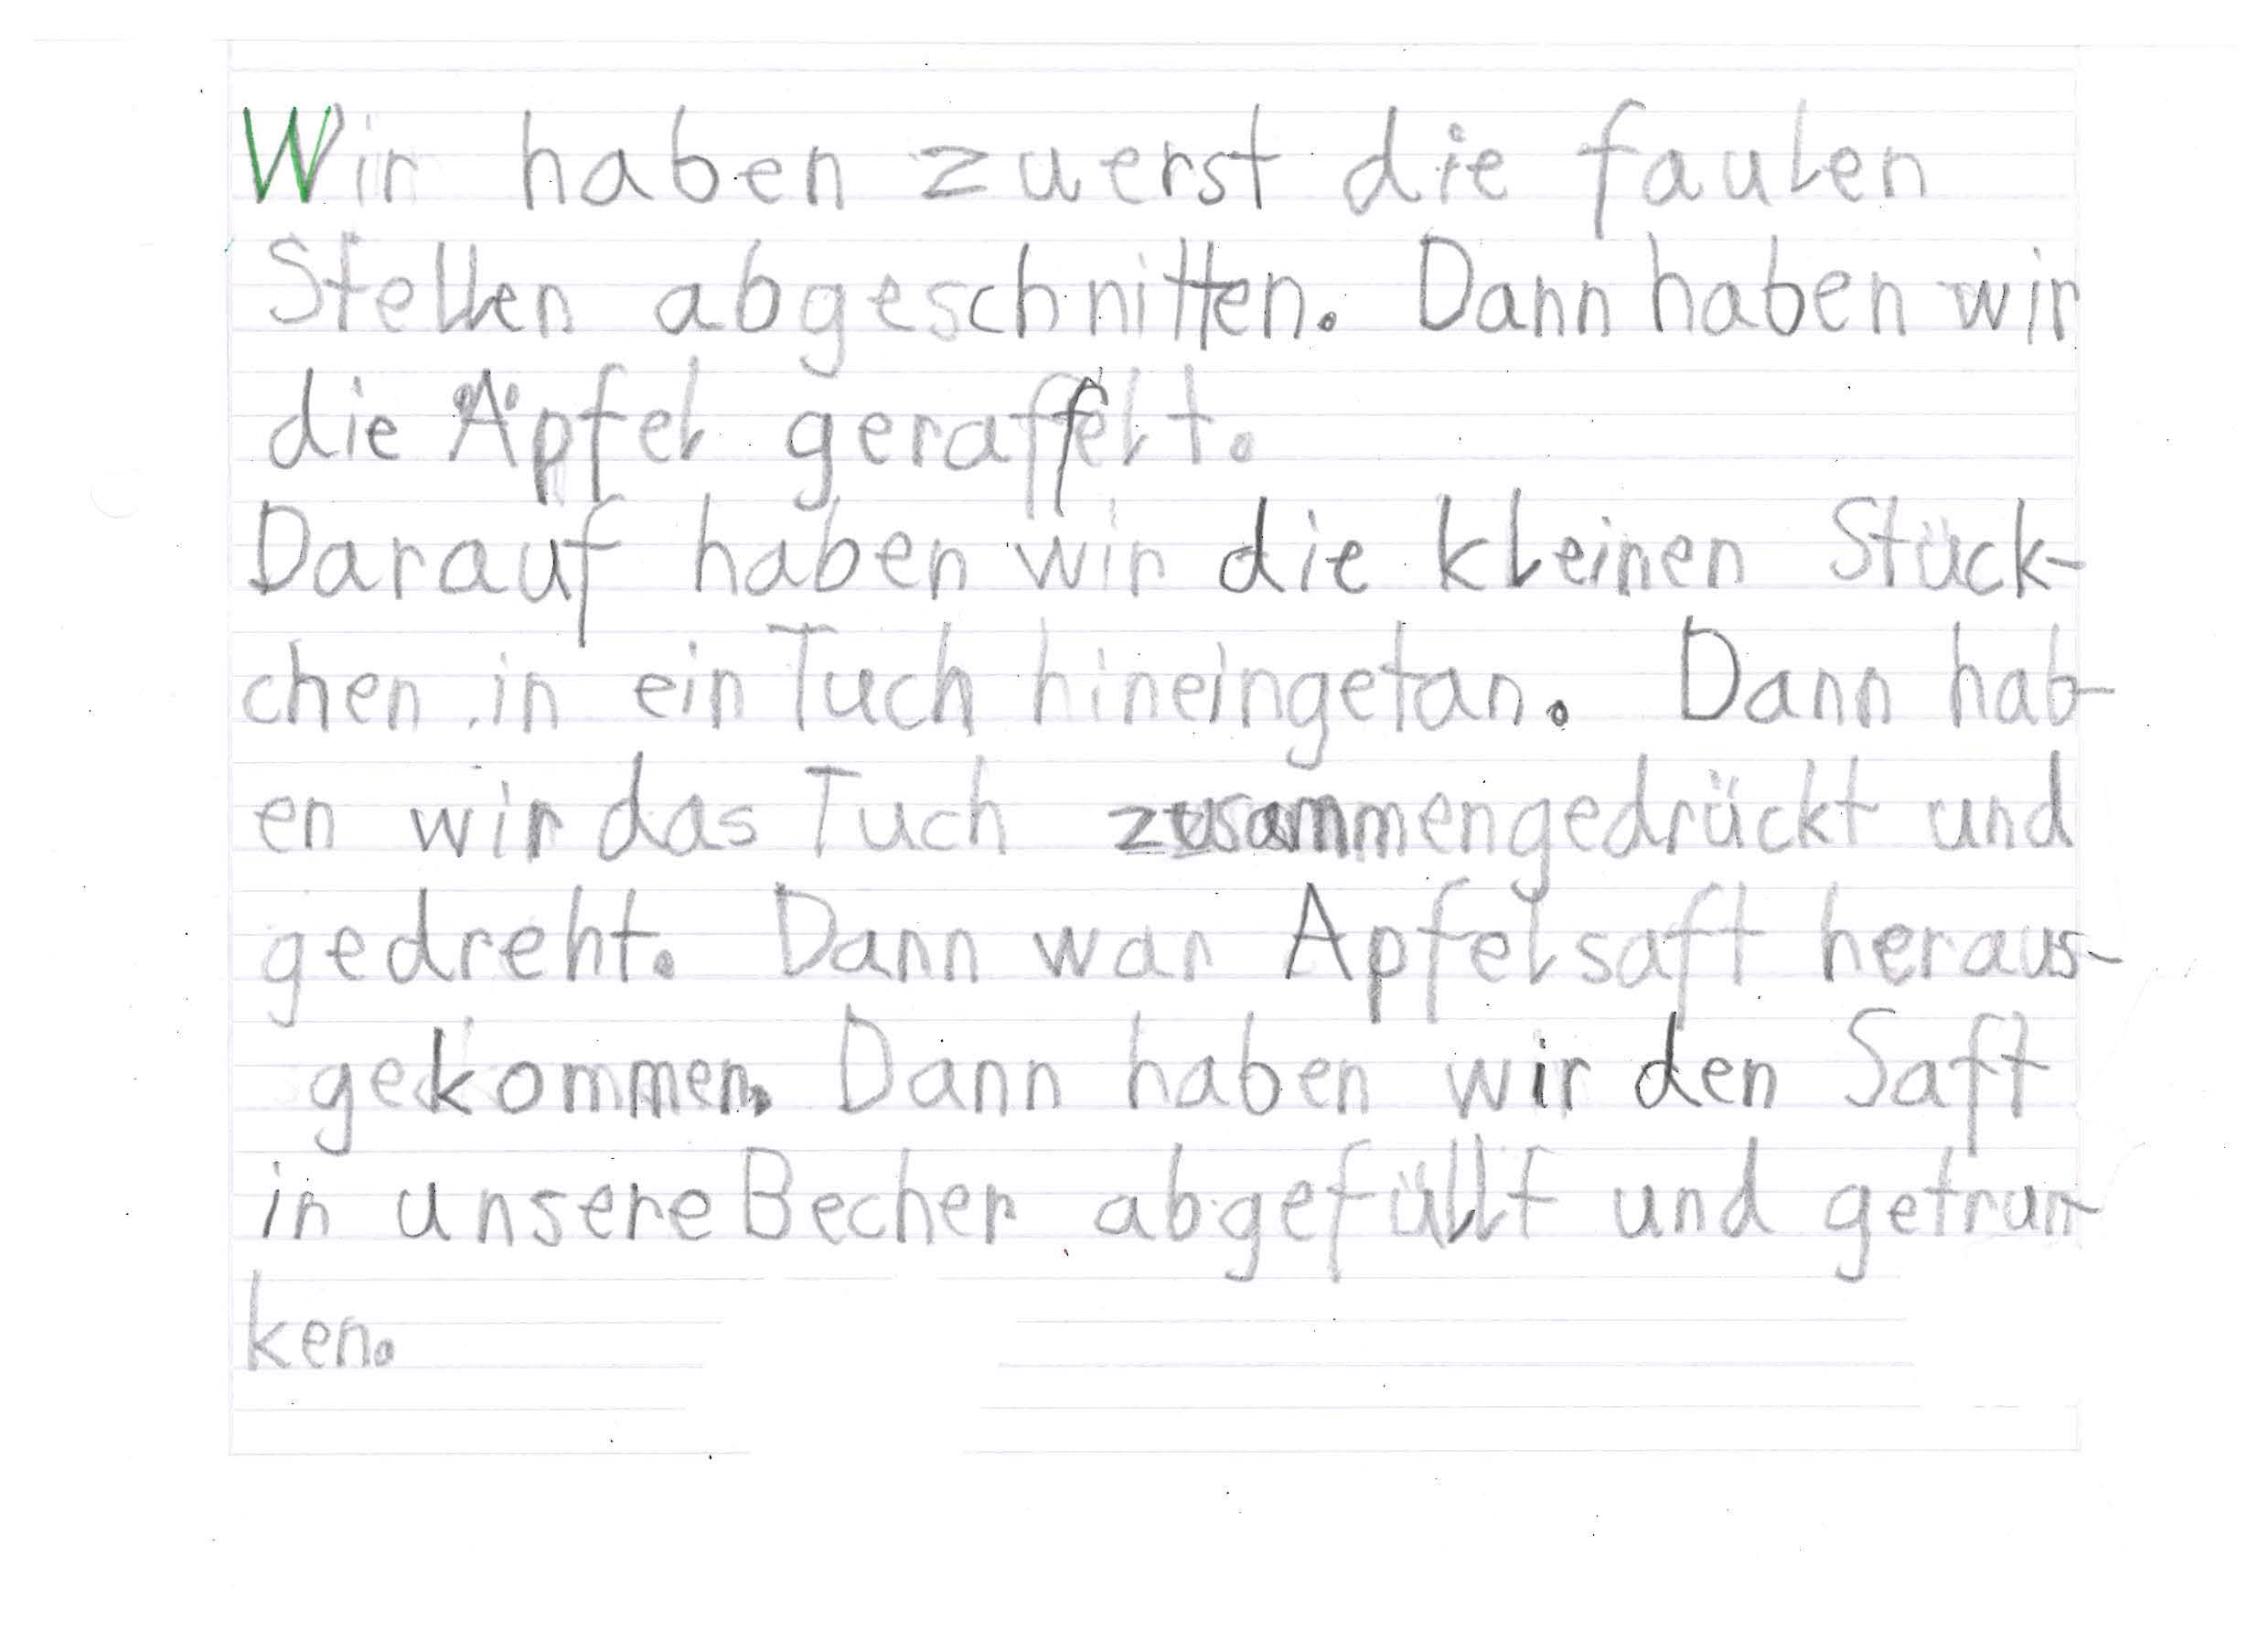 Wir haben zuerst die faulen
Stellen abgeschnitten. Dann haben wir
die Äpfel geraffelt.
Darauf haben wir die kleinen Stück-
chen in ein Tuch hineingetan. Dann hab-
en wir das Tuch zusammengedrückt und
gedreht. Dann war Apfelsaft heraus-
gekommen. Dann haben wir den Saft
in unsere Becher abgefüllt und getrun-
ken.